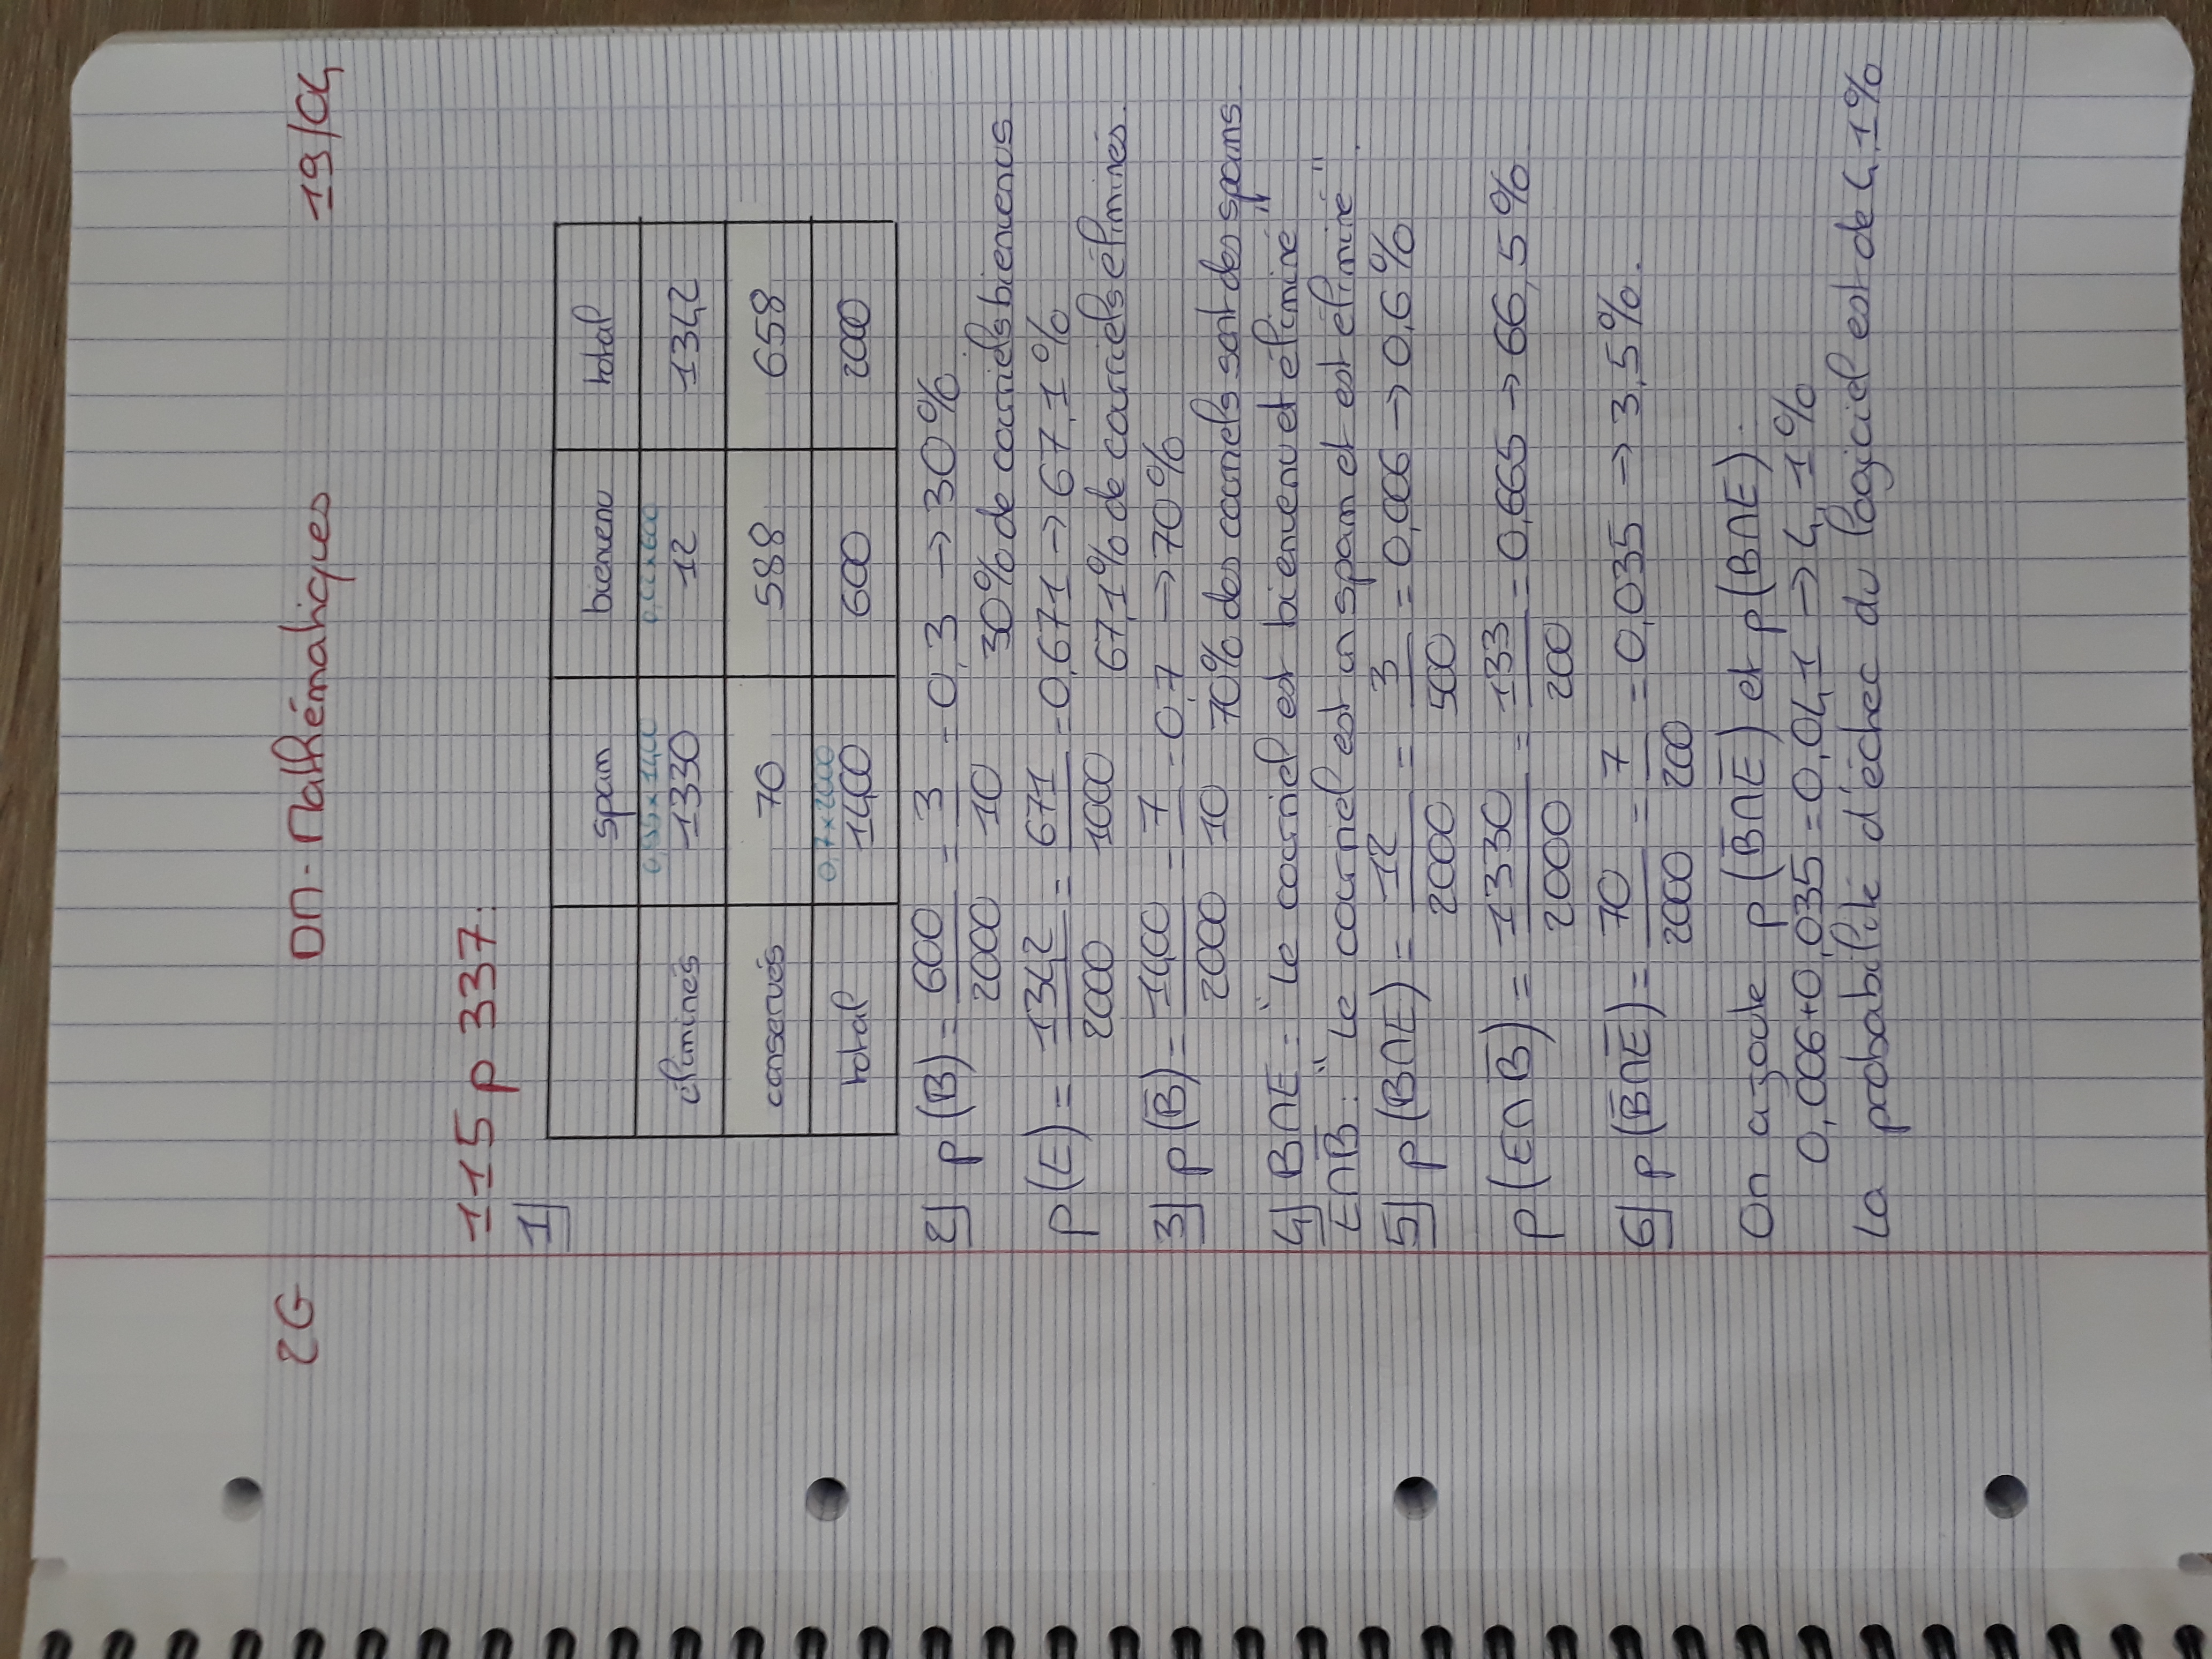 2G DM - Mathématiques 19/04
115 p 337:
1]
spam bienvenu total
0,95x1400 0,02x600
éliminés 1330 12 1342
conservés 70 588 658
0,7x2000
total 1400 600 2000
2] p(B) = 600/2000 = 3/10 = 0,3 → 30%
30% de courriels bienvenus
p(E) = 1342/2000 = 671/1000 = 0,671 → 67,1%
67,1% de courriels éliminés.
3] p(B̅) = 1400/2000 = 7/10 = 0,7 → 70%
70% des courriels sont des spams
4] B∩E = "Le courriel est bienvenu et éliminé"
E∩B̅ : "Le courriel est un spam et est éliminé".
5] p(B∩E) = 12/2000 = 3/500 = 0,006 → 0,6%
p(E∩B̅) = 1330/2000 = 133/200 = 0,665 → 66,5%
6] p(B̅∩E̅) = 70/2000 = 7/200 = 0,035 → 3,5%.
On ajoute p(B̅∩E̅) et p(B∩E).
0,006+0,035 = 0,041 → 4,1%
La probabilité d'échec du logiciel est de 4,1%